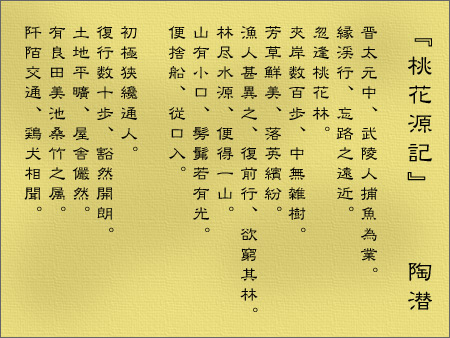 『桃花源記』　陶潜
晋太元中、武陵人捕魚為業。
縁渓行、忘路之遠近。
忽逢桃花林。
夾岸数百歩、中無雑樹。
芳草鮮美、落英繽紛。
漁人甚異之、復前行、欲窮其林。
林尽水源、便得一山。
山有小口、髣髴若有光。
便捨船、従口入。
初極狭纔通人。
復行数十歩、豁然開朗。
土地平曠、屋舎儼然。
有良田美池桑竹之属。
阡陌交通、鶏犬相聞。